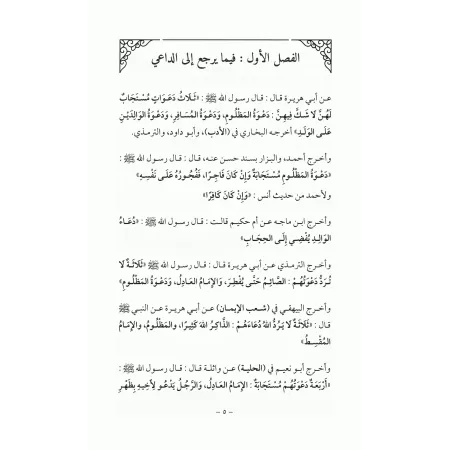 الفصل الأول : فيما يرجع إلى الداعي
عن أبي هريرة قال : قال رسول الله ﷺ : «ثَلَاثُ دَعَوَاتٍ مُسْتَجَابٌ
لَهُنَّ لَا شَكَّ فِيهِنَّ : دَعْوَةُ المَظْلُومِ، وَدَعْوَةُ المُسَافِرِ، وَدَعْوَةُ الوَالِدَيْنِ
عَلَى الوَلَدِ» أخرجه البخاري في (الأدب)، وأبو داود، والترمذي.
وأخرج أحمد، والبزار بسند حسن عنه، قال : قال رسول الله ﷺ :
«دَعْوَةُ المَظْلُومِ مُسْتَجَابَةٌ وَإِنْ كَانَ فَاجِرًا، فَفُجُورُهُ عَلَى نَفْسِهِ»
ولأحمد من حديث أنس : «وَإِنْ كَانَ كَافِرًا»
وأخرج ابن ماجه عن أم حكيم قالت : قال رسول الله ﷺ : «دُعَاءُ
الوَالِدِ يُفْضِي إِلَى الحِجَابِ»
وأخرج الترمذي عن أبي هريرة قال : قال رسول الله ﷺ «ثَلَاثَةٌ لَا
تُرَدُّ دَعْوَتُهُمْ : الصَّائِمُ حَتَّى يُفْطِرَ، وَالإِمَامُ العَادِلُ، وَدَعْوَةُ المَظْلُومِ»
وأخرج البيهقي في (شعب الإيمان) عن أبي هريرة عن النبي ﷺ
قال : «ثَلَاثَةٌ لَا يَرُدُّ اللهُ دُعَاءَهُمْ : الذَّاكِرُ اللهَ كَثِيرًا، والمَظْلُومُ، والإِمَامُ
المُقْسِطُ»
وأخرج أبو نعيم في (الحلية) عن واثلة قال : قال رسول الله ﷺ :
«أَرْبَعَةٌ دَعْوَتُهُمْ مُسْتَجَابَةٌ : الإِمَامُ العَادِلُ، وَالرَّجُلُ يَدْعُو لِأَخِيهِ بِظَهْرِ
– ٥ –